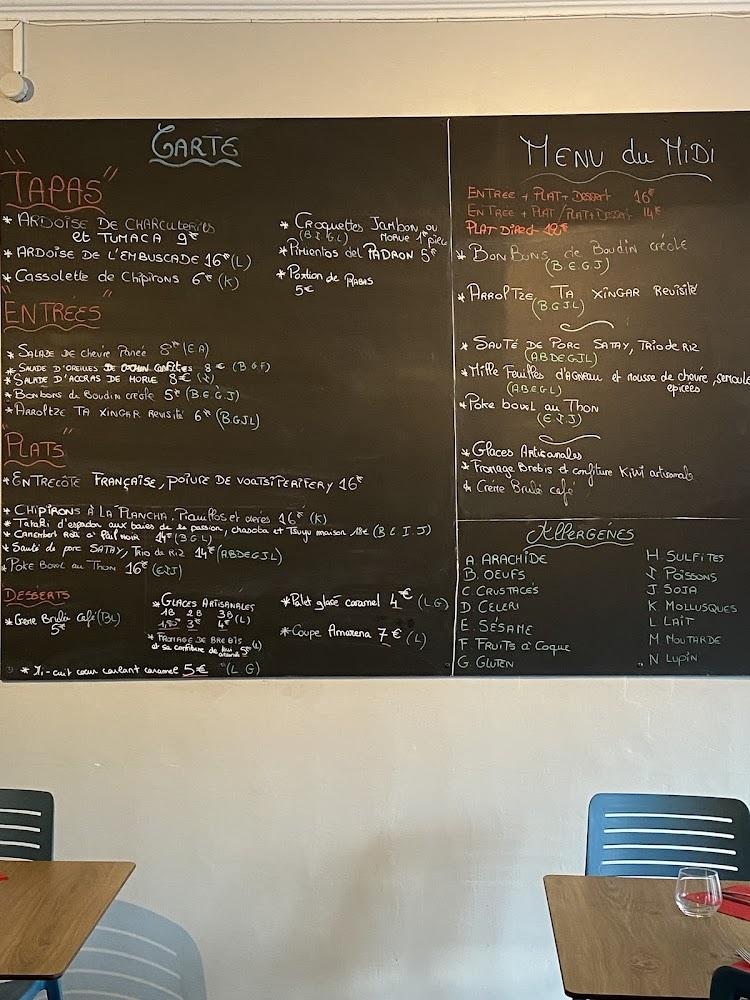 CARTE
"TAPAS"
* ARDOISE DE CHARCUTERIES
et TUMACA 9€
* ARDOISE DE L'EMBUSCADE 16€ (L)
* Cassolette de Chipirons 6€ (K)
* Croquettes Jambon ou
(B.I.G.L) MORUE 1€ pièce
* Pimientos del PADRON 5€
* Portion de RABAS
5€
"ENTRÉES"
* SALADE DE chèvre Panée 8€ (E.A)
* SALADE D'OREILLES DE COCHON confites 8€ (B.G.F)
* SALADE D'ACCRAS DE MORUE 8€
* Bonbons de Boudin créole 5€ (B.E.G.J)
* ARROLTZE TA XINGAR REVISITÉ 6€ (B.G.J.L)
"PLATS"
* ENTRECÔTE FRANÇAISE, POIVRE DE VOATSIPERIFERY 16€
* CHIPIRONS À LA PLANCHA, Piquillos et 16€ (K)
* Tataki d'espadon aux baies de la passion, et Tsuyu maison 18€ (B.E.I.J)
* CAMEMBERT Rôti à l'ail noir 14€ (B.G.L)
* Sauté de porc SATAY, Trio de Riz 14€ (ABDEGJL)
* POKE BOWL AU THON 16€ (EIJ)
DESSERTS
* Crème Brulée Café (BL)
5€
* GLACES ARTISANALES
1B 2B 3B
1,50 3€ 4€ (L)
* FROMAGE DE BREBIS
et sa confiture de kiwi 5€ (L)
* Palet glacé caramel 4€ (LG)
* Coupe Amarena 7€ (L)
* Mi-cuit cœur coulant caramel 5€ (L.G)
MENU du MIDI
ENTREE + PLAT + Dessert 16€
ENTREE + PLAT / PLAT + DESSERT 14€
PLAT DIRECT 12€
* BonBons de Boudin créole
(B.E.G.J)
* ARROLTZE TA XINGAR REVISITÉ
(B.G.J.L)
* SAUTÉ DE PORC SATAY, TRIO de RIZ
(ABDEGJL)
* Mille Feuilles d'AGNEAU et mousse de chèvre, semoule
(A.B.E.G.L) épicées
* Poke bowl au Thon
(E.I.J)
* Glaces Artisanales
* Fromage Brebis et confiture Kiwi artisanale
* Crème Brulée café
Allergènes
A. ARACHIDE
B. OEUFS
C. CRUSTACÉS
D. CELERI
E. SÉSAME
F. FRUITS à Coque
G. GLUTEN
H. SULFITES
I Poissons
J. SOJA
K. MOLLUSQUES
L. LAIT
M. MOUTARDE
N LUPIN